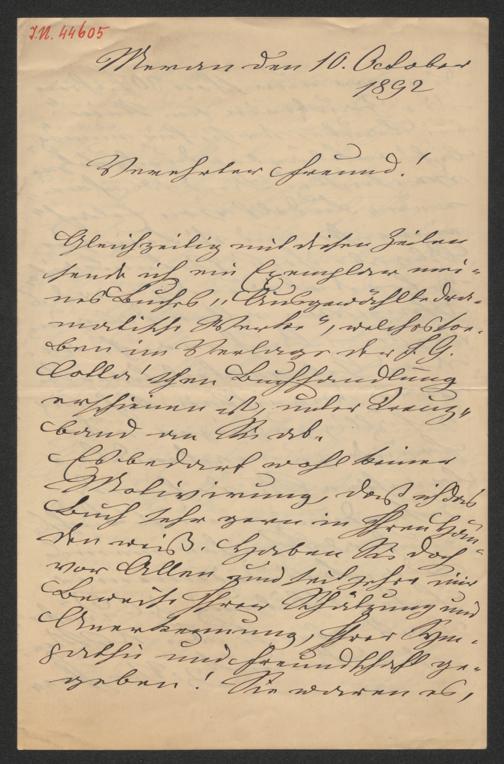 I.N. 44605
Meran den 10. October
1892
Verehrter Freund!
Gleichzeitig mit diesen Zeilen
sende ich ein Exemplar mei-
nes Buches „Ausgewählte dra-
matische Werke", welches soe-
ben im Verlage der J. G.
Cotta'schen Buchhandlung
erschienen ist, unter Kreuz-
band an Sie ab.
Es bedarf wohl keiner
Motivirung, daß ich das
Buch sehr gern in Ihren Hän-
den weiß. Haben Sie doch
vor Allen und seit jeher mir
Beweise Ihrer Schätzung und
Anerkennung, Ihrer Sym-
pathie und Freundschaft ge-
geben! Sie waren es,